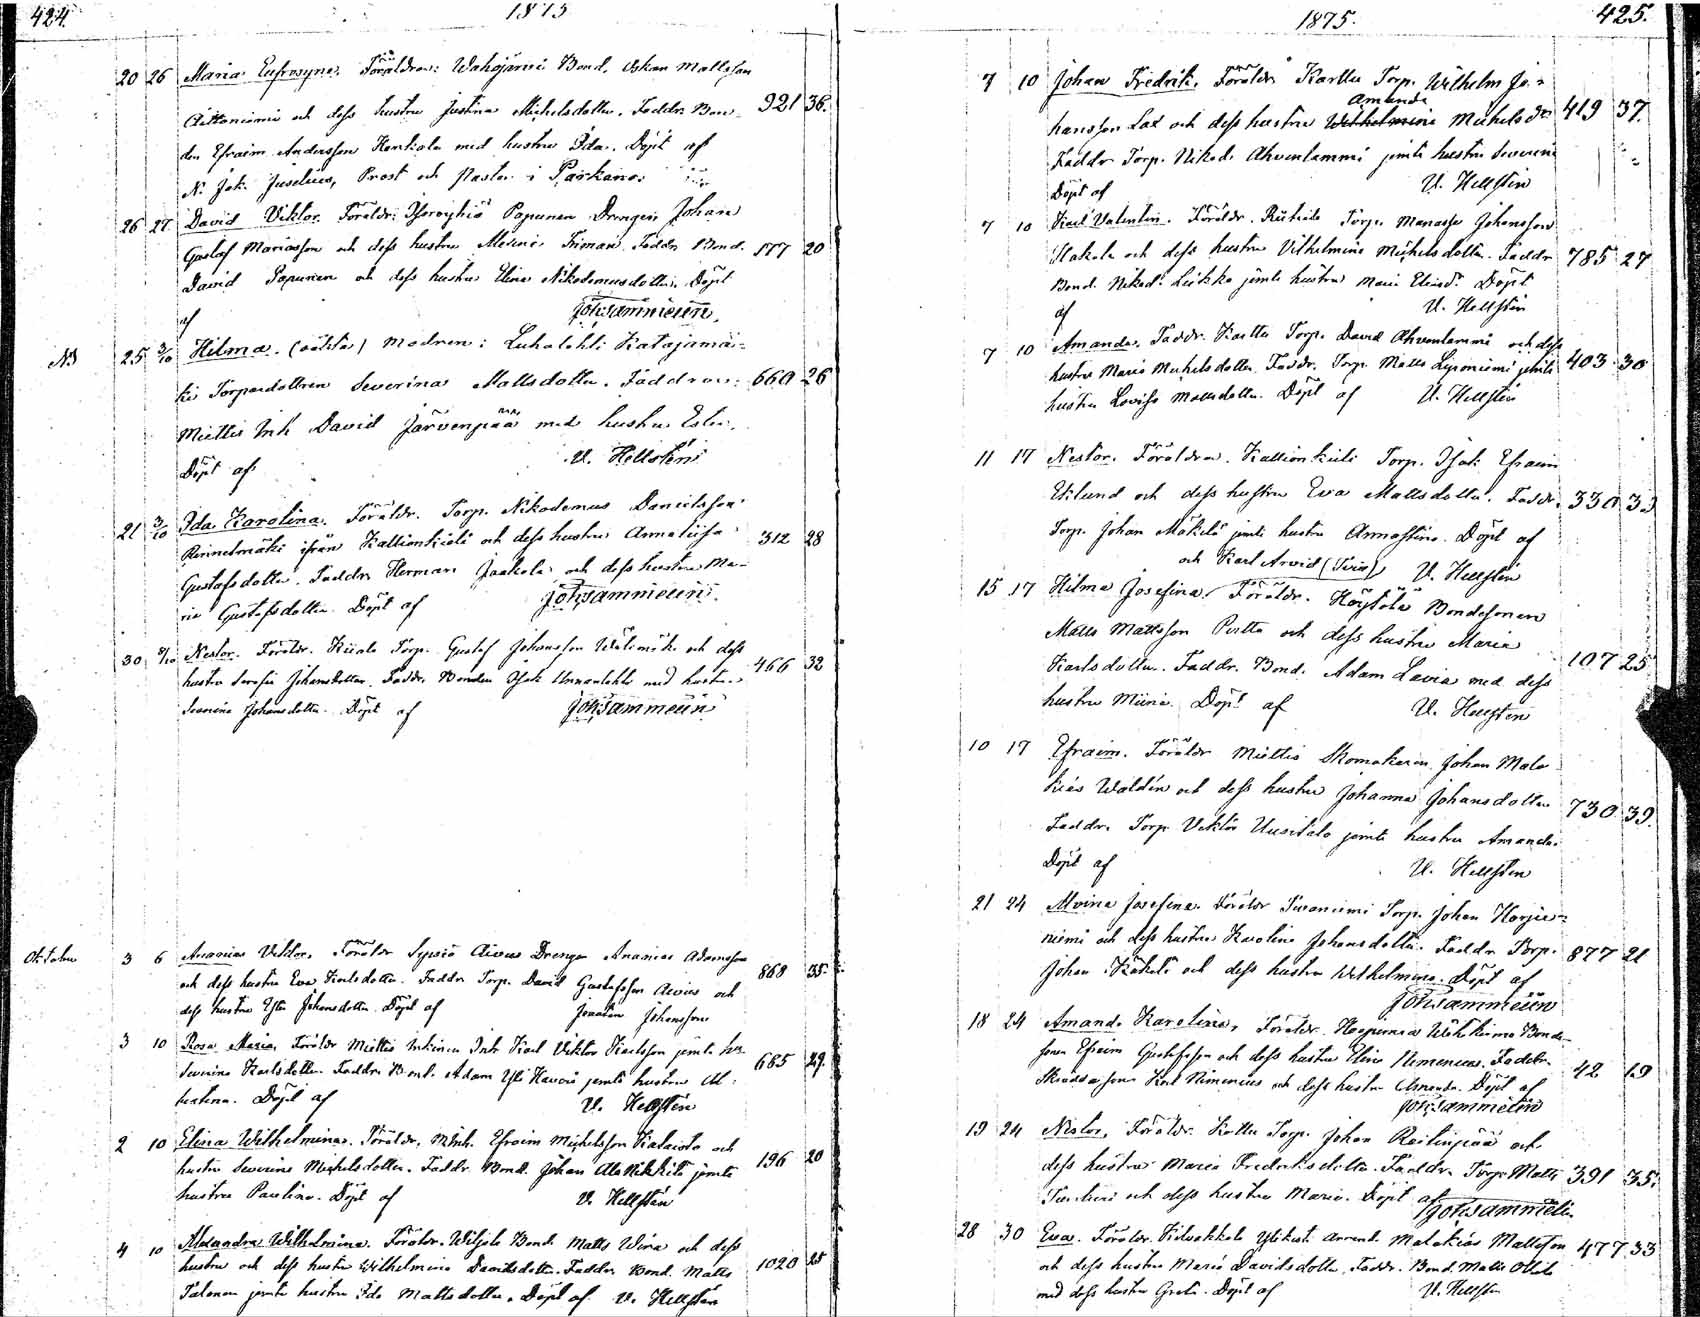 424.
1875
20 26 Maria Eufrosyne. Föräldrar: Wahojärvi Bond. Oskar Mattsson
och dess hustru Justina Michelsdotter. Faddr. Bon- 921 36.
den Efraim Andersson Henkola med hustru Ida. Döpt af
N. Joh. Juselius, Prost och Pastor i Parkano.
26 27 David Viktor. Föräldr: Papunen Drengen Johan
Gustaf Mariasson och dess hustru Friman. Faddr. Bond. 177 20
David Papunen och dess hustru Elina Nikodemusdotter. Döpt
af Joh. Sammelin.
NB 25 3/10 Hilma. (oäkta) Modren: Luhalahti Katajamä-
ki Torparedottren Severina Mattsdotter. Faddrar: 660 26
Miettis Inh David Järvenpää med hustru Ester.
Döpt af U. Hellstén
21 3/10 Ida Karolina. Föräldr. Torp. Nikodemus Danielsson
Rinnelmäki ifrån Kallionkieli och dess hustru Annaliisa 312 28
Gustafsdotter. Faddr. Herman Jaakola och dess hustru Ma-
ria Gustafsdotter. Döpt af Joh. Sammelin.
30 3/10 Nestor. Föräldr. Kiiala Torp. Gustaf Johansson Wälimäki och dess
hustru Serafia Johansdotter. Faddr. Bonden Isak med hustru 466 32
Severina Johansdotter. Döpt af Joh. Sammelin
Oktober 3 6 Ananias Viktor. Föräldr Sipsiö Aivus Dreng Ananias Adamsson
och dess hustru Eva Karlsdotter. Faddr Torp. David Gustafsson Aivus och 868 35.
dess hustru Johansdotter. Döpt af Jonatan Johansson
3 10 Rosa Maria. Föräldr Miettis Inkinen Inh. Karl Viktor Karlsson jemte hu.
Severina Karlsdotter. Faddr. Bond. Adam jemte hustru Al- 685 29.
bertina. Döpt af U. Hellstén
2 10 Elina Wilhelmina. Föräldr. Efraim Michelsson och
hustru Severina Michelsdotter. Faddr. Bond. Johan Ala Nikkilä jemte 196 20
hustru Paulina. Döpt af U. Hellstén
4 10 Alexandra Wilhelmina. Föräldr. Bond. Matts Wina och dess
hustru och dess hustru Wilhelmina Davidsdotter. Faddr. Bond. Matts 1020 25
Salonen jemte hustru Ida Mattsdotter. Döpt af U. Hellstén
1875.
425.
7 10 Johan Fredrik. Föräldr Karttu Torp. Wilhelm Jo-
Amanda
hansson Lax och dess hustru Wilhelmina Michelsdr 419 37.
Faddr Torp. Nikod. Ahvenlammi jemte hustru Severina
Döpt af U. Hellstén
7 10 Karl Valentin. Föräldr. Torp. Manasse Johansson
och dess hustru Vilhelmina Michelsdotter. Faddr 785 27
Bond. Nikod. Liikka jemte hustru Maria Elisd. Döpt
af U. Hellstén
7 10 Amanda. Faddr. Karttu Torp. David Ahvenlammi och dess
hustru Maria Michelsdotter. Faddr. Torp. Matts Leponiemi jemte 403 30
hustru Lovisa Mattsdotter. Döpt af U. Hellstén
11 17 Nestor. Föräldrar. Kallionkieli Torp. Isak Efraim
Eklund och dess hustru Eva Mattsdotter. Faddr. 330 33
Torp. Johan Mäkilä jemte hustru Annastina. Döpt af
och Karl Arvid (Tvill.) U. Hellstén
15 17 Hilma Josefina. Föräldr. Höytölä Bondesonen
Matts Mattsson Pertto och dess hustru Maria
Karlsdotter. Faddr. Bond. Adam Lavia med dess 107 25
hustru Miina. Döpt af U. Hellstén
10 17 Efraim. Föräldr Miettis Skomakaren Johan Mala-
kias Waldén och dess hustru Johanna Johansdotter 730 39.
Faddr. Torp Viktor Uusitalo jemte hustru Amanda.
Döpt af U. Hellstén
21 24 Alvina Josefina. Föräldr Torp. Johan Harju-
niemi och dess hustru Karolina Johansdotter. Faddr. Torp. 877 21
Johan Kökelä och dess hustru Wilhelmina. Döpt af
Joh. Sammelin
18 24 Amanda Karolina. Föräldr. Heopernia Bonde-
sonen Efraim Gustafsson och dess hustru Elina Nimenius. Faddr. 42 19
Skräddaresonen Karl Nimenius och dess hustru Amanda. Döpt af
Joh. Sammelin
19 24 Nestor. Föräldr. Torp. Johan och
dess hustru Maria Fredriksdotter. Faddr. Torp. Matts 391 35.
och dess hustru Maria. Döpt af Joh. Sammelin.
28 30 Eva. Föräldr. Malakias Mattsson 477 33
och dess hustru Maria Davidsdotter. Faddr. Bond. Matts
med dess hustru Greta. Döpt af U. Hellstén